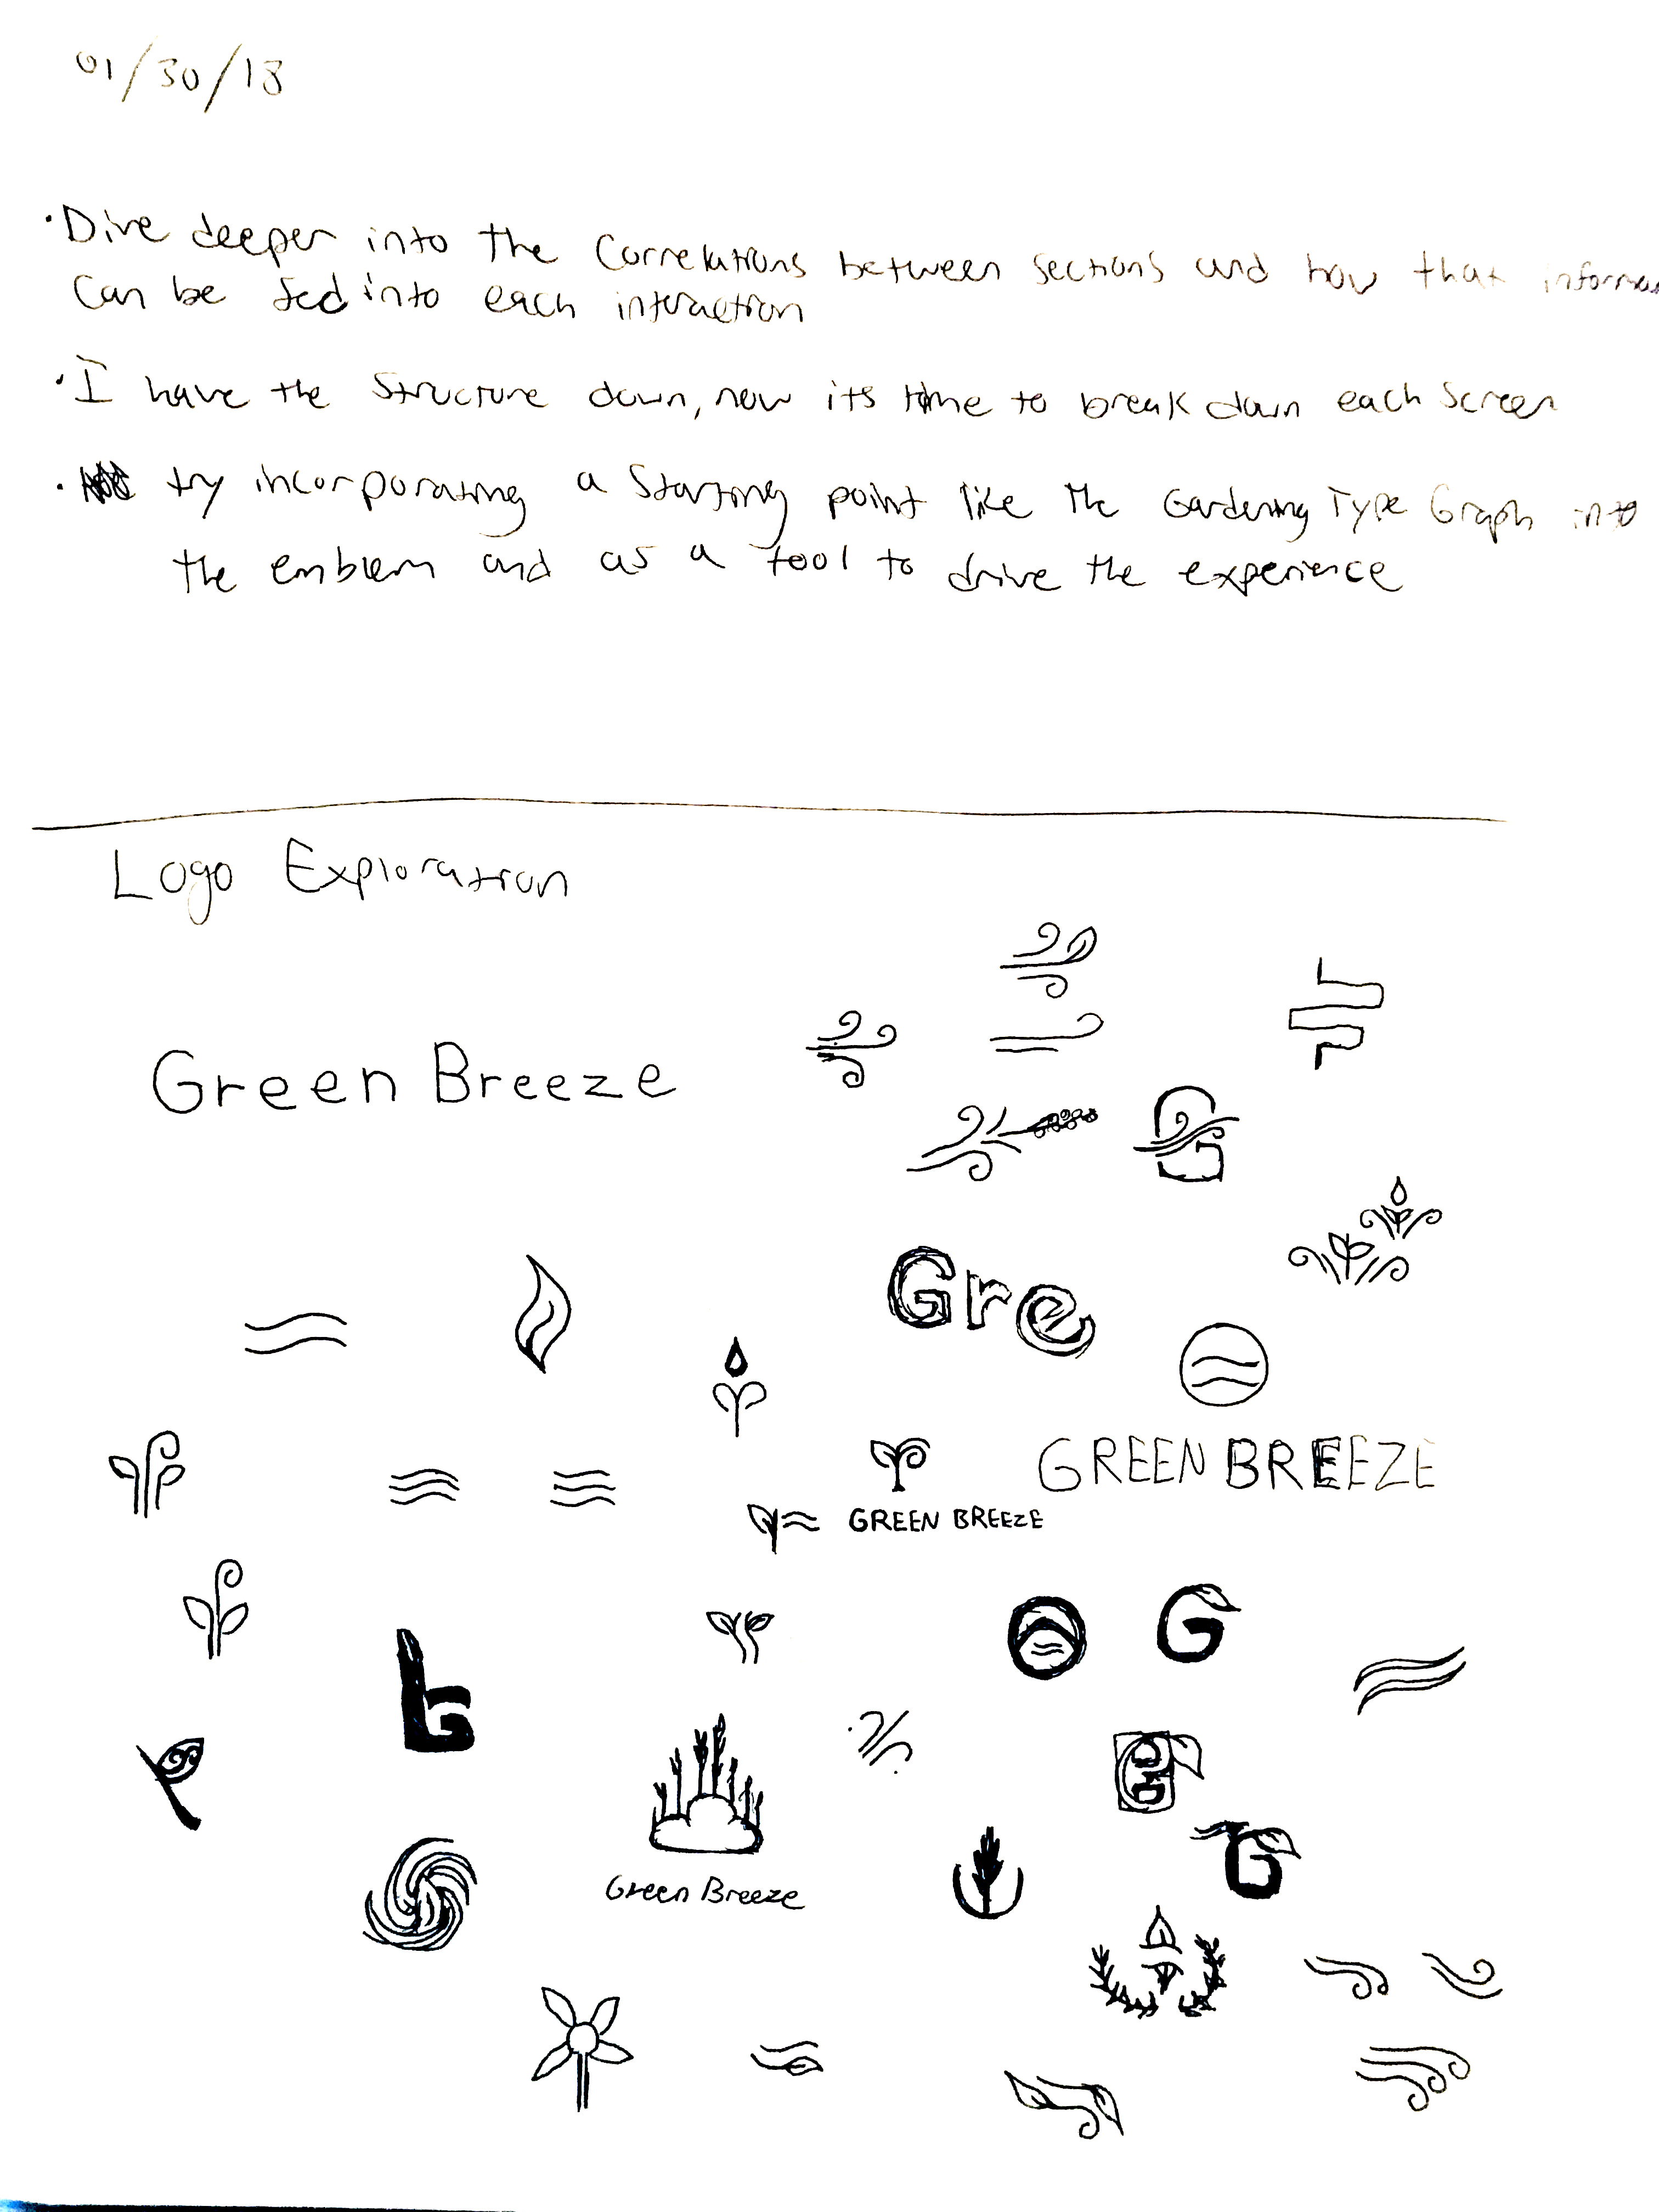 01/30/18
· Dive deeper into the Correlations between sections and how that
Can be fed into each interaction
· I have the Structure down, now its time to break down each Screen
· try incorporating a Starting point like the Gardening Type Graph into
the emblem and as a tool to drive the experience
Logo Exploration
Green Breeze
Gre
GREEN BREEZE
GREEN BREEZE
G
G
Green Breeze
G